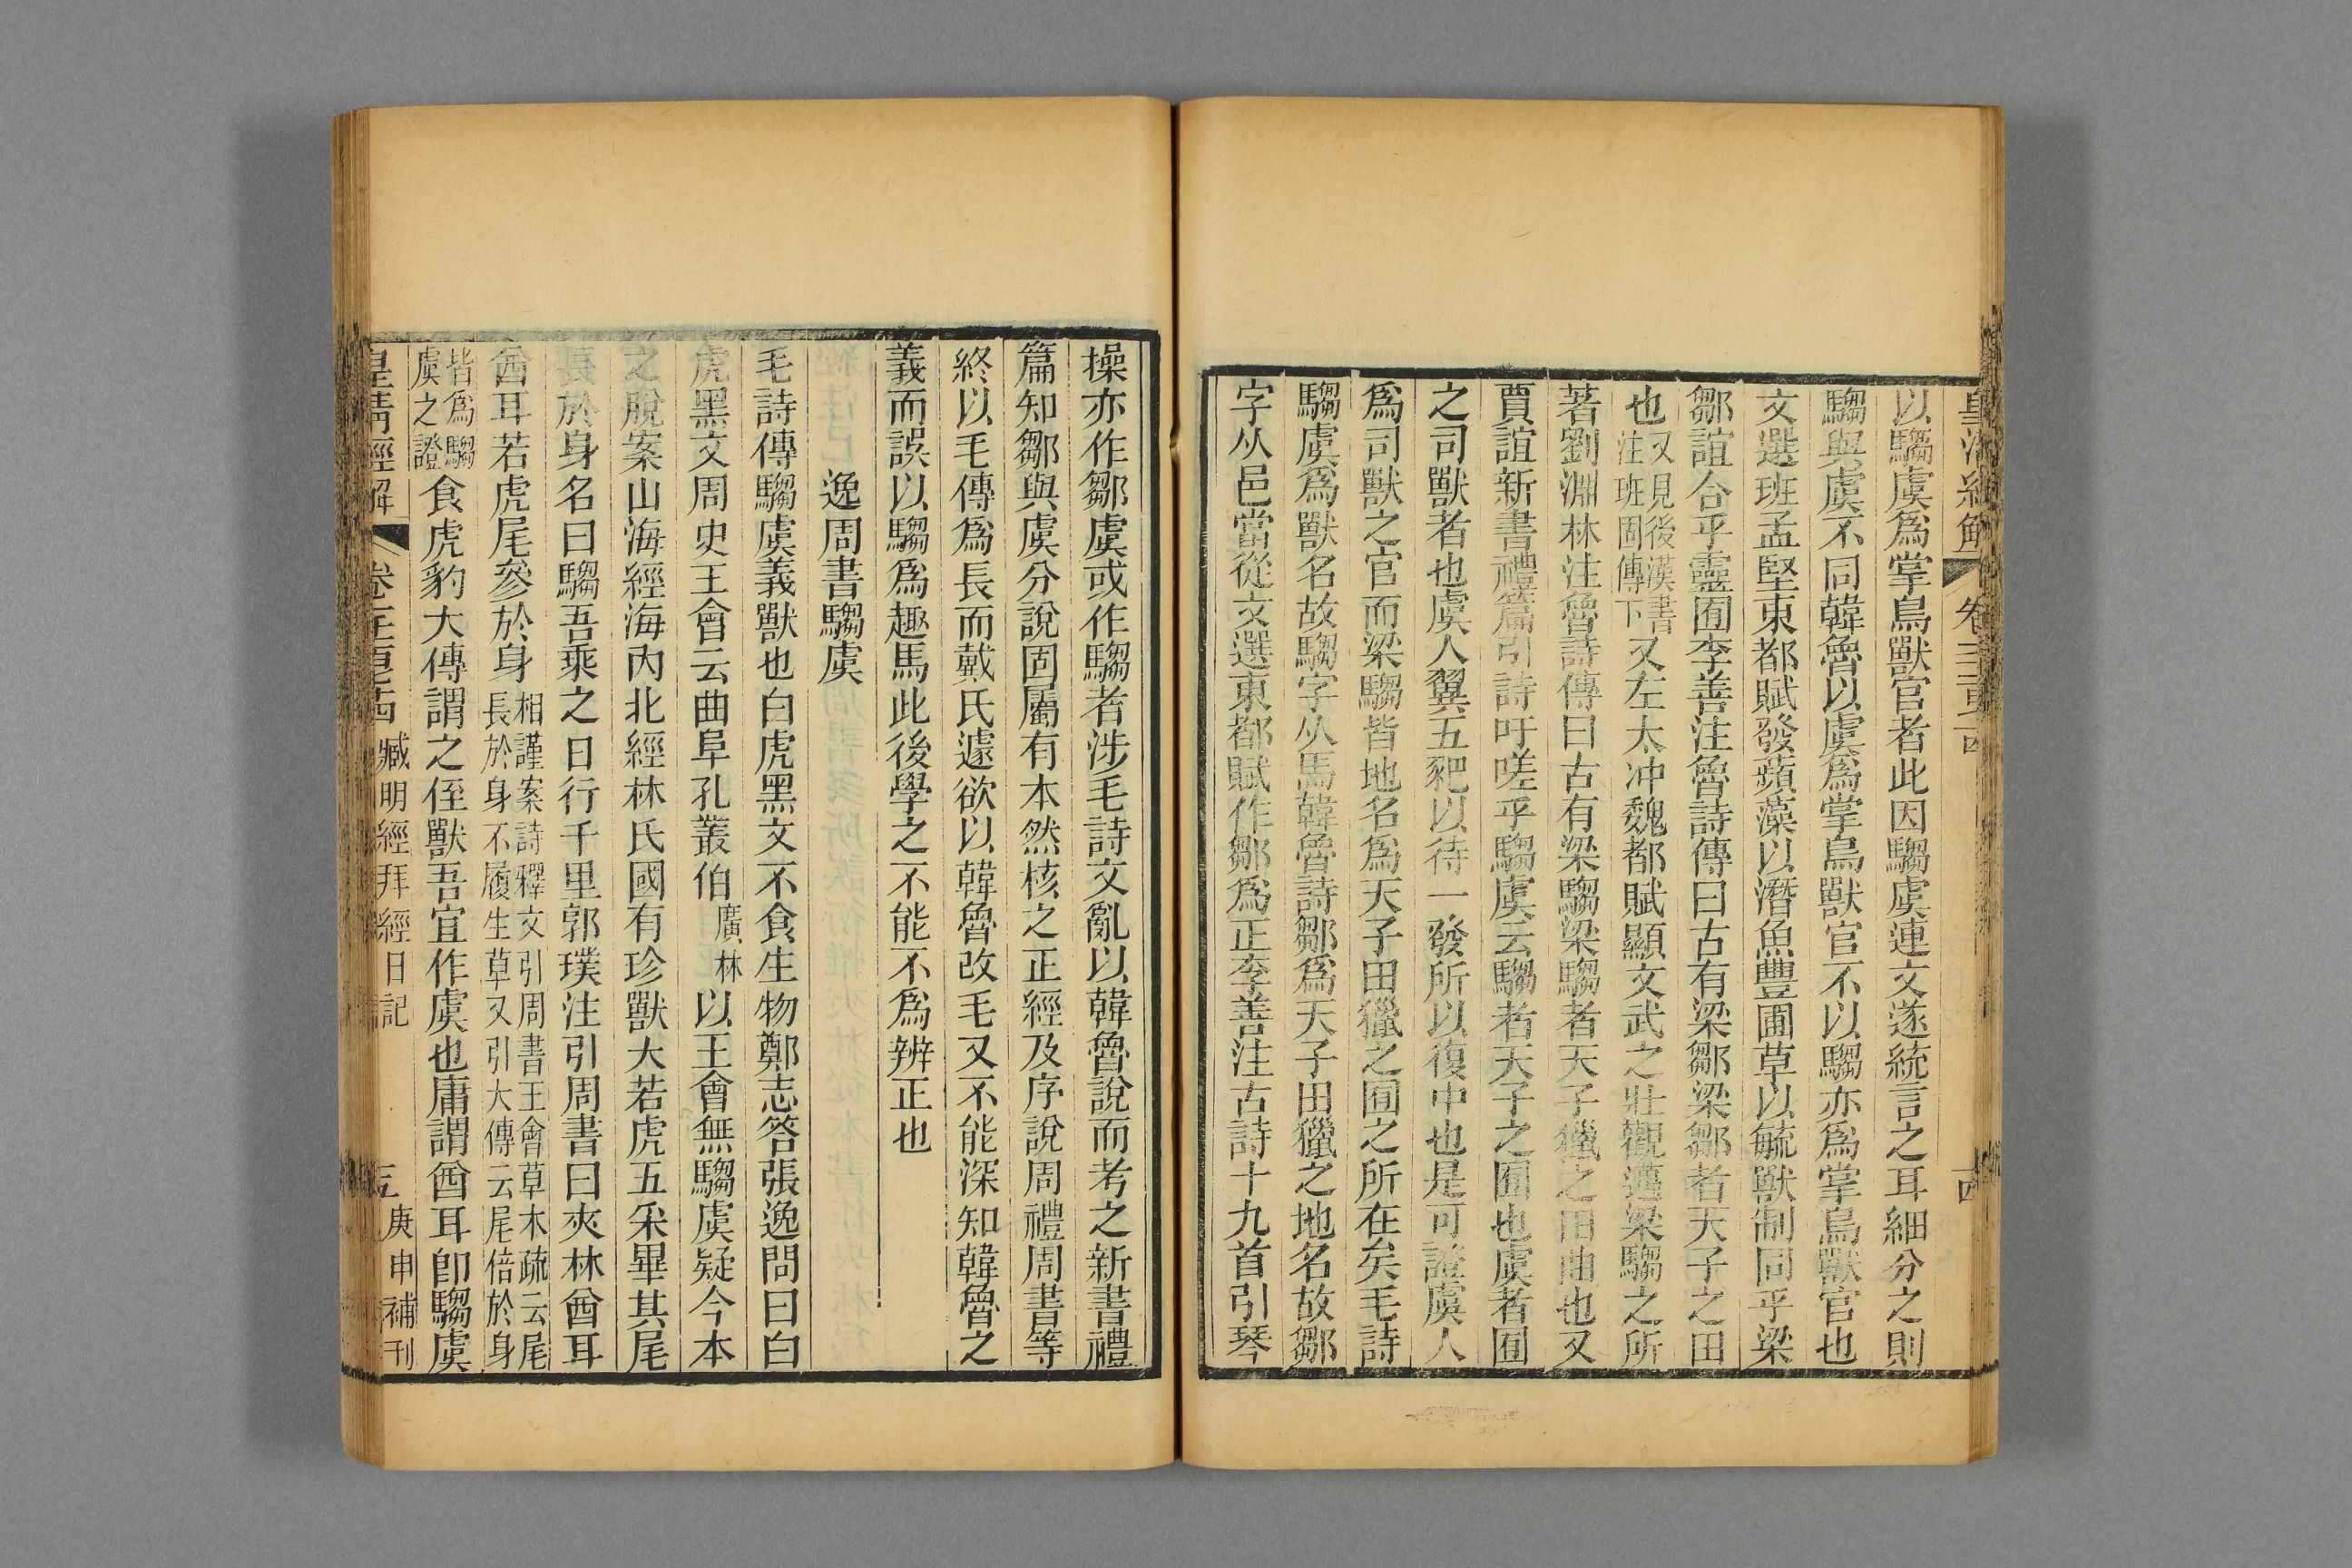 以騶虞爲掌鳥獸官者此因騶虞連文遂統言之耳細分之則
騶與虞不同韓魯以虞爲掌鳥獸官不以騶亦爲掌鳥獸官也
文選班孟堅東都賦發蘋藻以潛魚豐圃草以毓獸制同乎梁
鄒誼合乎靈囿李善注魯詩傳曰古有梁鄒梁鄒者天子之田
也又見後漢書注班固傳下又左太冲魏都賦顯文武之壯觀邁梁騶之所
著劉淵林注魯詩傳曰古有梁騶梁騶者天子獵之田曲也又
賈誼新書禮篇引詩吁嗟乎騶虞云騶者天子之囿也虞者囿
之司獸者也虞人翼五豝以待一發所以復中也是可證虞人
爲司獸之官而梁騶皆地名爲天子田獵之囿之所在矣毛詩
騶虞爲獸名故騶字从馬韓魯詩鄒爲天子田獵之地名故鄒
字从邑當從文選東都賦作鄒爲正李善注古詩十九首引琴
操亦作鄒虞或作騶者涉毛詩文亂以韓魯說而考之新書禮
篇知鄒與虞分說固屬有本然核之正經及序說周禮周書等
終以毛傳爲長而戴氏遽欲以韓魯改毛又不能深知韓魯之
義而誤以騶爲趣馬此後學之不能不爲辨正也
逸周書騶虞
毛詩傳騶虞義獸也白虎黑文不食生物鄭志答張逸問曰白
虎黑文周史王會云曲阜孔叢伯廣林以王會無騶虞疑今本
之脫案山海經海內北經林氏國有珍獸大若虎五采畢其尾
長於身名曰騶吾乘之日行千里郭璞注引周書曰夾林酋耳
酋耳若虎尾參於身相謹案詩釋文引周書王會草木疏云尾長於身不履生草又引大傳云尾倍於身
皆爲騶虞之證食虎豹大傳謂之侄獸吾宜作虞也庸謂酋耳卽騶虞
皇淸經解 臧明經拜經日記 庚申補刊